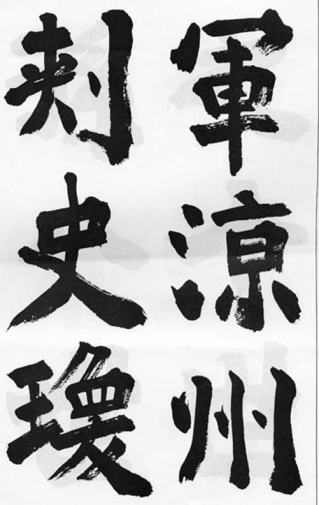 軍涼州
刺史瓌